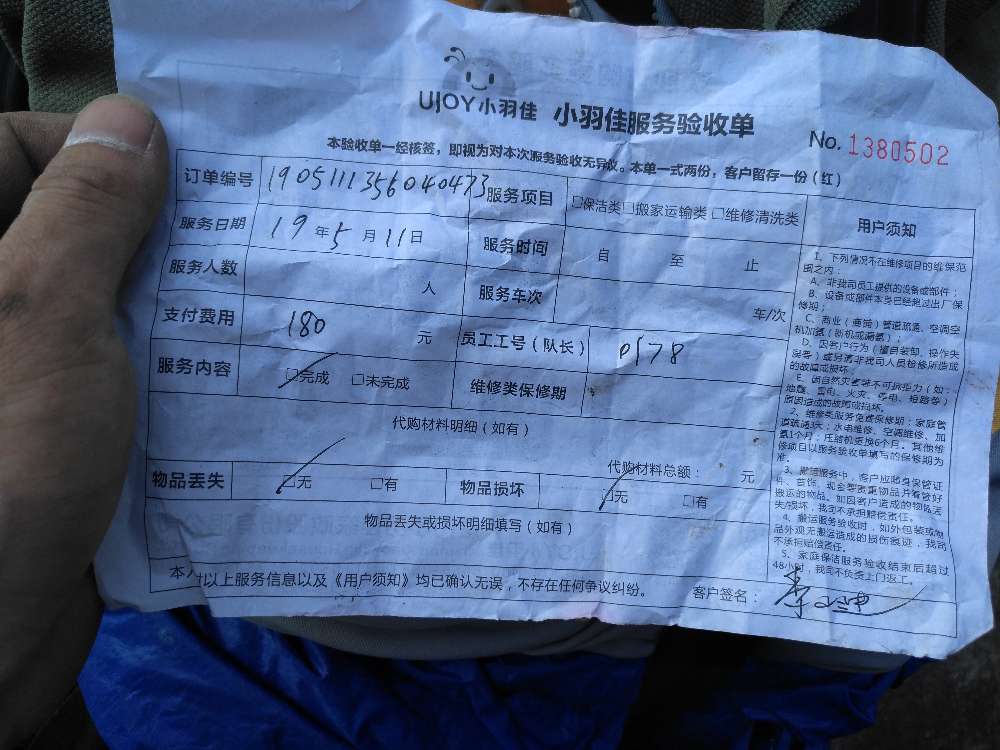 UJOY小羽佳 小羽佳服务验收单
No. 1380502
本验收单一经核签，即视为对本次服务验收无异议。本单一式两份，客户留存一份（红）
订单编号 190511135604 0473 服务项目 □保洁类 □搬家运输类 □维修清洗类
服务日期 19年5月11日 服务时间 自 至 止
服务人数 人 服务车次 车/次
支付费用 180 元 员工工号（队长） 0178
服务内容 □完成 □未完成 维修类保修期
代购材料明细（如有）
代购材料总额： 元
物品丢失 □无 □有 物品损坏 □无 □有
物品丢失或损坏明细填写（如有）
本人对以上服务信息以及《用户须知》均已确认无误，不存在任何争议纠纷。 客户签名：
用户须知
1、下列情况不在维修项目的维保范
围之内：
A、非我司员工提供的设备或部件；
B、设备或部件本身已经超过出厂保
修期；
C、商业（商铺）管道疏通、空调空
机加氨（断机或漏氨）；
D、因客户行为（擅自装卸、操作失
误等）或另请非我司人员检修所造成
的故障或损坏；
E、因自然灾害等不可抗拒力（如：
地震、雷电、火灾、停电、短路等）
原因造成的故障或损坏。
2、维修类服务免费保修期：家庭管
道疏通3天；水电维修、空调维修、加
氨1个月；压缩机更换6个月。其他维
修项目以服务验收单填写的保修期为
准。
3、搬运服务中，客户应随身保管证
件、首饰、现金等贵重物品并看管好
搬运的物品。如因客户造成的物品丢
失/损坏，我司不承担赔偿责任。
4、搬运服务验收时，如外包装或物
品外观无搬运造成的损伤痕迹，我司
不承担赔偿责任。
5、家庭保洁服务验收结束后超过
48小时，我司不负责上门返工。